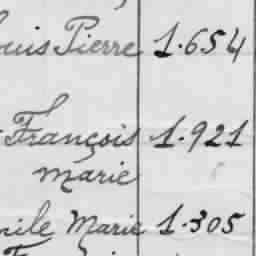 Pierre 1.654
François 1.921
Marie
Marie 1.305